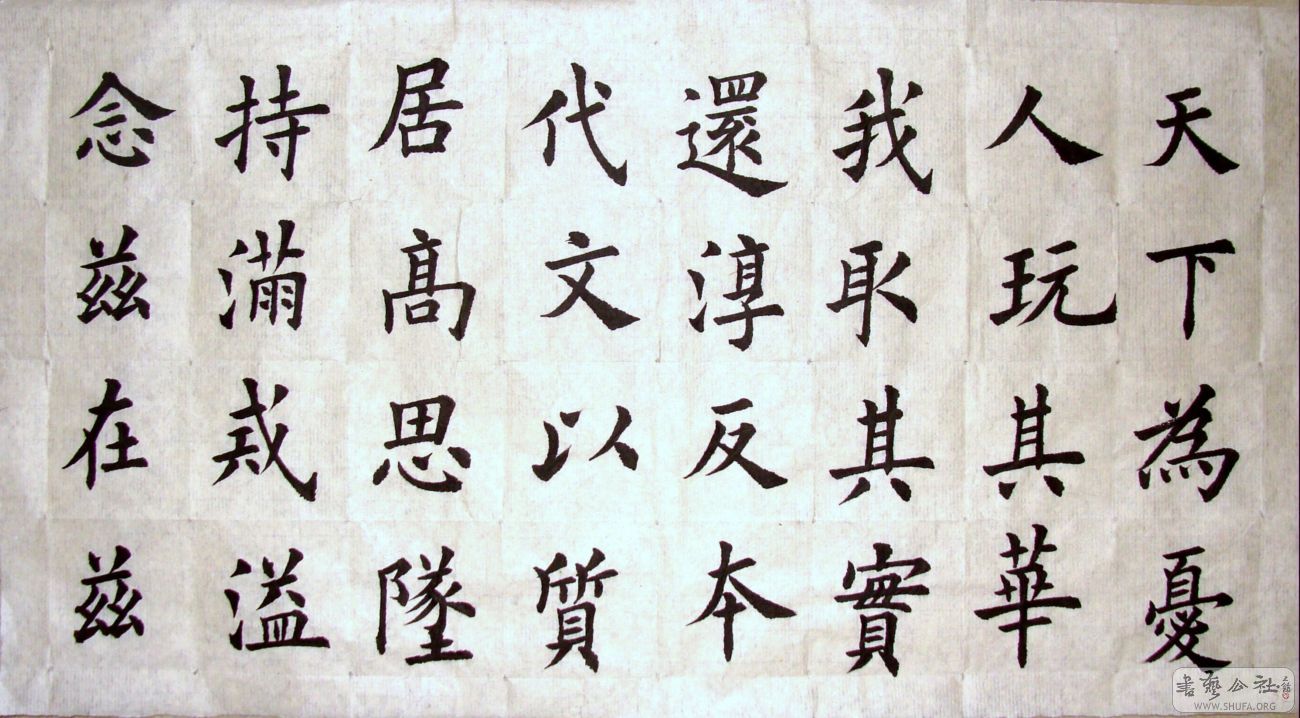 天下為憂
人玩其華
我取其實
還淳反本
代文以質
居高思墜
持滿戒溢
念茲在茲
書藝公社
WWW.SHUFA.ORG